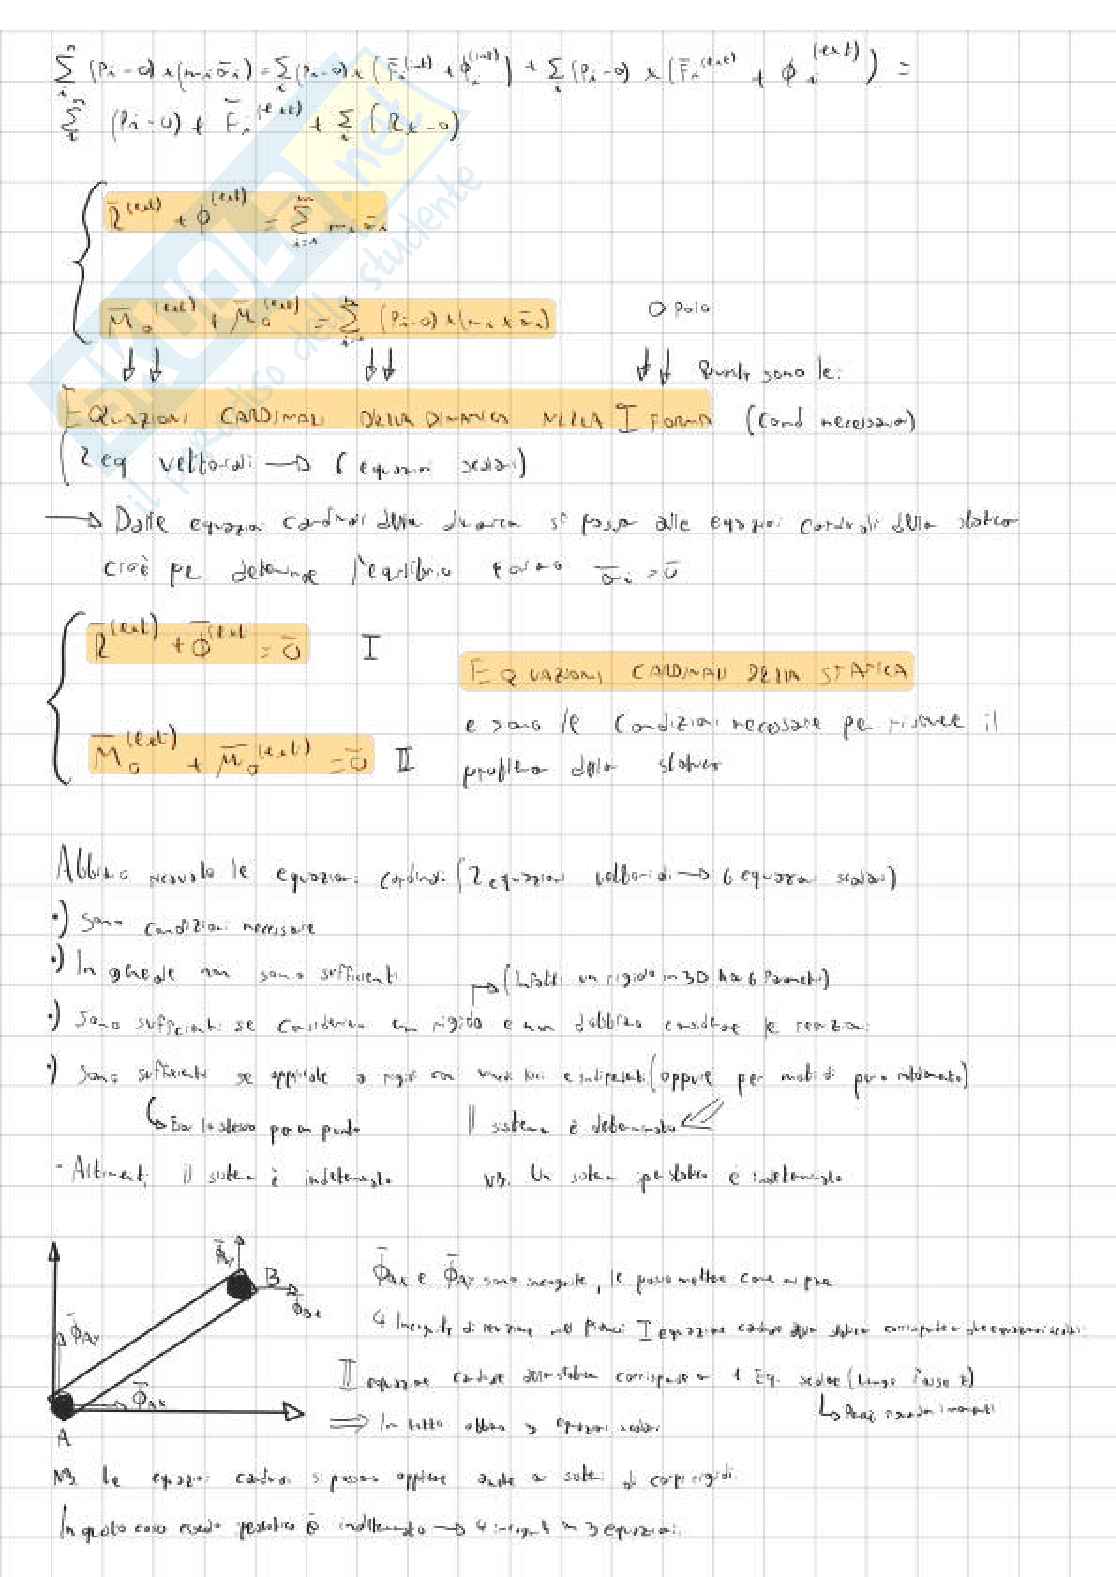 Σ (Pi-O) x (mi āi) = Σ (Pi-O) x (F̄i^(int) + ϕi^(int)) + Σ (Pi-O) x (F̄i^(ext) + ϕi^(ext)) =
Σ (Pi-O) x F̄i^(ext) + Σ (Rx-O)
R̄^(ext) + ϕ^(ext) = Σ mi āi
M̄o^(ext) + M̄o^(ext) = Σ (Pi-O) x (mi x āi) O Polo
↓↓ ↓↓ ↓↓ Queste sono le:
EQUAZIONI CARDINALI DELLA DINAMICA NELLA I FORMA (Cond necessaria)
(2 eq vettoriali → 6 equazioni scalari)
→ Dalle equazioni cardinali della dinamica si passa alle equazioni cardinali della statica
cioè per determinare l'equilibrio āi = ō
R̄^(ext) + ϕ̄^(ext = ō I
EQUAZIONI CARDINALI DELLA STATICA
e sono le condizioni necessarie per risolvere il
M̄o^(ext) + M̄o^(ext) = ō II
problema della statica
Abbiamo ricavato le equazioni cardinali (2 equazioni vettoriali → 6 equazioni scalari)
•) Sono condizioni necessarie
•) In generale non sono sufficienti
→ (Infatti un rigido in 3D ha 6 Parametri)
•) Sono sufficienti se consideriamo un rigido e non dobbiamo considerare le reazioni
•) Sono sufficienti se applicate a rigidi con vincoli lisci e indipendenti (oppure per moti di puro rotolamento)
↳ Era lo stesso per un punto Il sistema è determinato
- Altrimenti il sistema è indeterminato NB. Un sistema iperstatico è indeterminato
B
ϕ̄Bx
ϕ̄Ay
ϕ̄Ax
A
ϕ̄Ax e ϕ̄Ay sono incognite, le posso mettere come mi pare
4 Incognite di reazione I equazione cardinale della statica corrisponde a due equazioni scalari
II equazione cardinale della statica corrisponde a 1 Eq. scalare (lungo l'asse z)
↳ momenti
⇒ In tutto abbiamo 3 equazioni scalari
NB. Le equazioni cardinali si possono applicare anche a sistemi di corpi rigidi.
In questo caso essendo iperstatico è indeterminato → 4 incognite in 3 equazioni.
SKUOLA.net
il paradiso dello studente